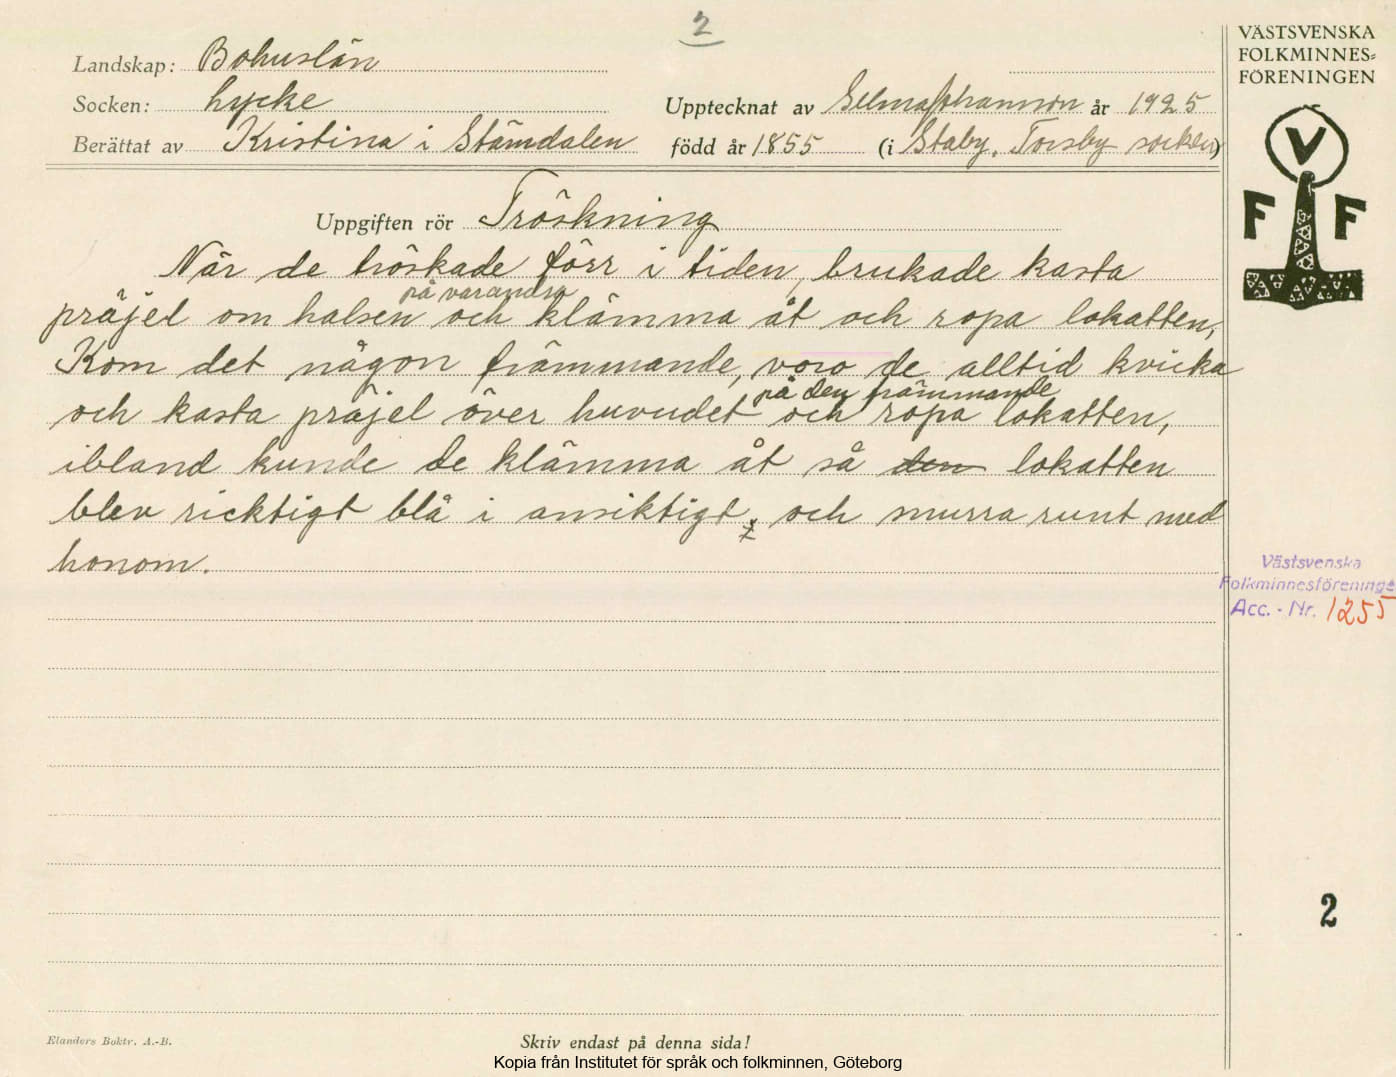 2
VÄSTSVENSKA
FOLKMINNES-
FÖRENINGEN
V
F F
Landskap: Bohuslän
Socken: Lycke
Upptecknat av Selma Johansson år 1925
Berättat av Kristina i Stämdalen född år 1855 (i Staby, Torsby socken)
Uppgiften rör Tröskning
När de tröskade förr i tiden, brukade kasta
på varandra
präjel om halsen och klämma åt och ropa lokatten,
Kom det någon främmande, voro de alltid kvicka
på den främmande
och kasta präjel över huvudet och ropa lokatten,
ibland kunde de klämma åt så den lokatten
blev ricktigt blå i ansiktigt, och snurra runt med
honom.
Västsvenska
Folkminnesföreninge
Acc. - Nr. 1255
2
Elanders Boktr. A.-B.
Skriv endast på denna sida!
Kopia från Institutet för språk och folkminnen, Göteborg